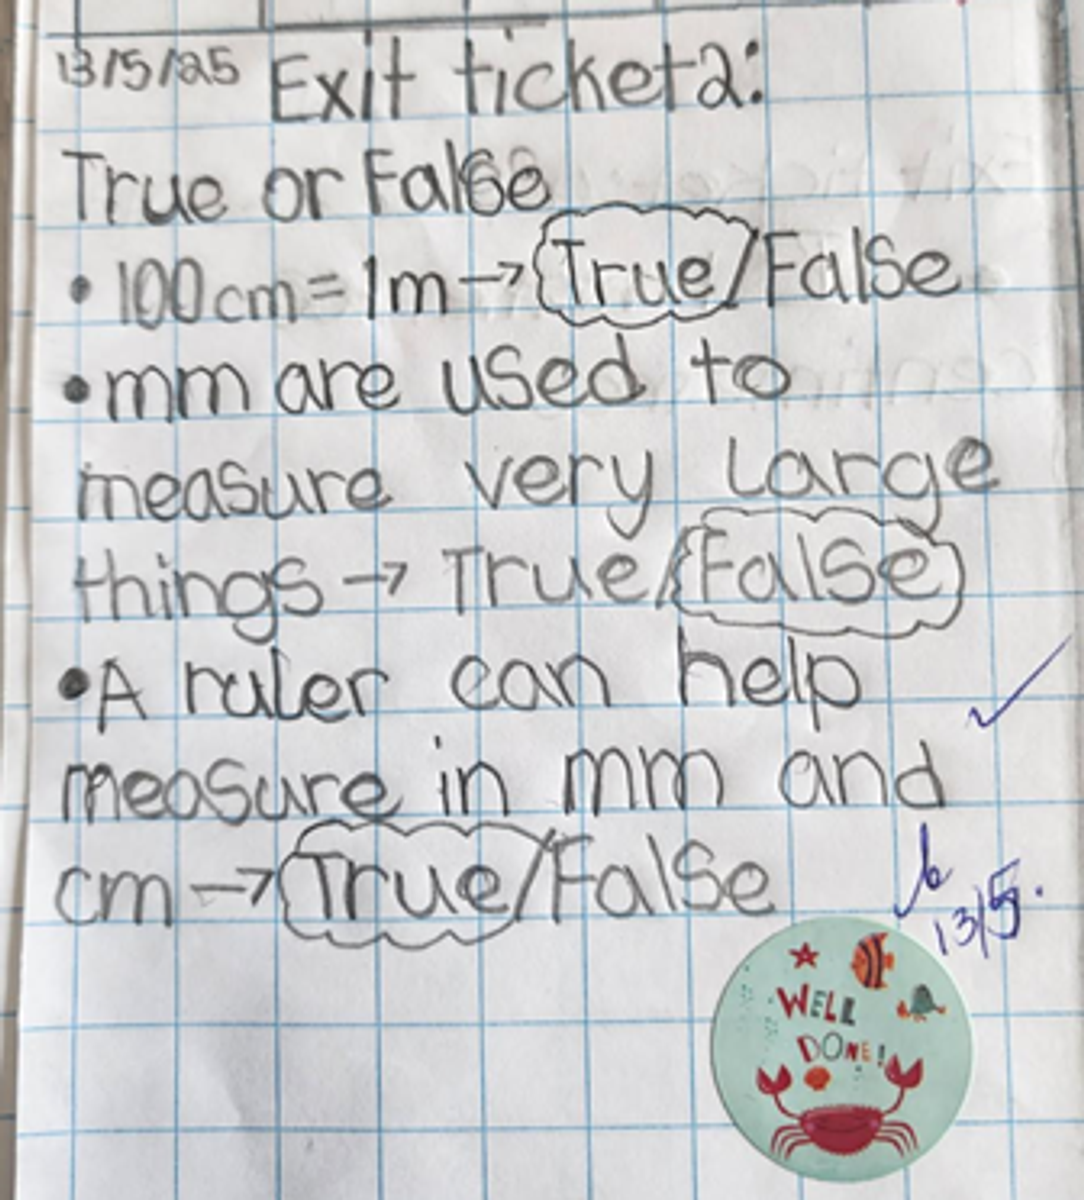 13/5/25 Exit ticket 2:
True or False
• 100cm = 1m → True/False
• mm are used to
measure very large
things → True/False
• A ruler can help
measure in mm and
cm → True/False
13/5.
WELL
DONE!